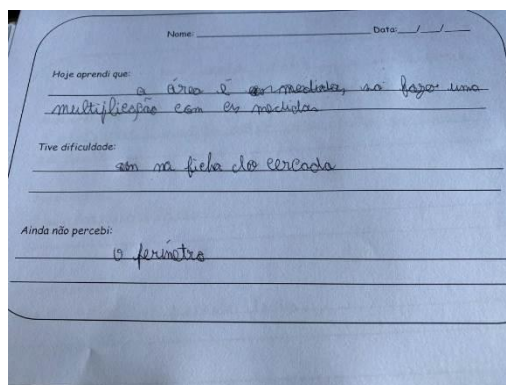 Nome: Data: / /
Hoje aprendi que:
a área é as medidas, só fazer uma
multiplicação com as medidas
Tive dificuldade:
na ficha do cercado
Ainda não percebi:
o perímetro